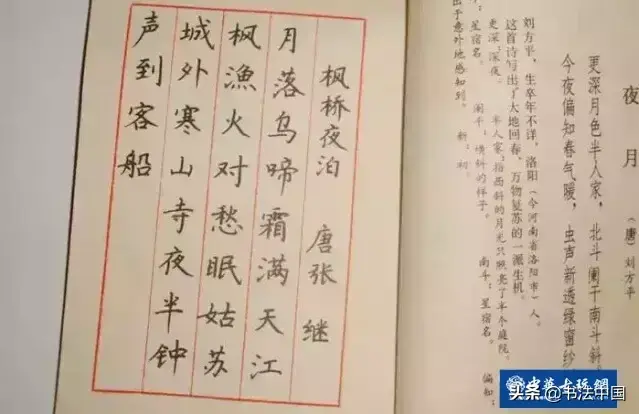 夜月
（唐）刘方平
更深月色半人家，北斗阑干南斗斜。
今夜偏知春气暖，虫声新透绿窗纱
刘方平，生卒年不详，洛阳（今河南省洛阳市）人。
这首诗写出了大地回春、万物复苏的一派生机。
更深：深夜。 半人家：指西斜的月光只照亮了半个庭院。
星宿名。 阑干：横斜的样子。 南斗：星宿名。 偏知：
出于意外地感知到。 新：初。
枫桥夜泊 唐张继
月落乌啼霜满天江
枫漁火对愁眠姑苏
城外寒山寺夜半钟
声到客船
中华古玩网
头条@书法中国